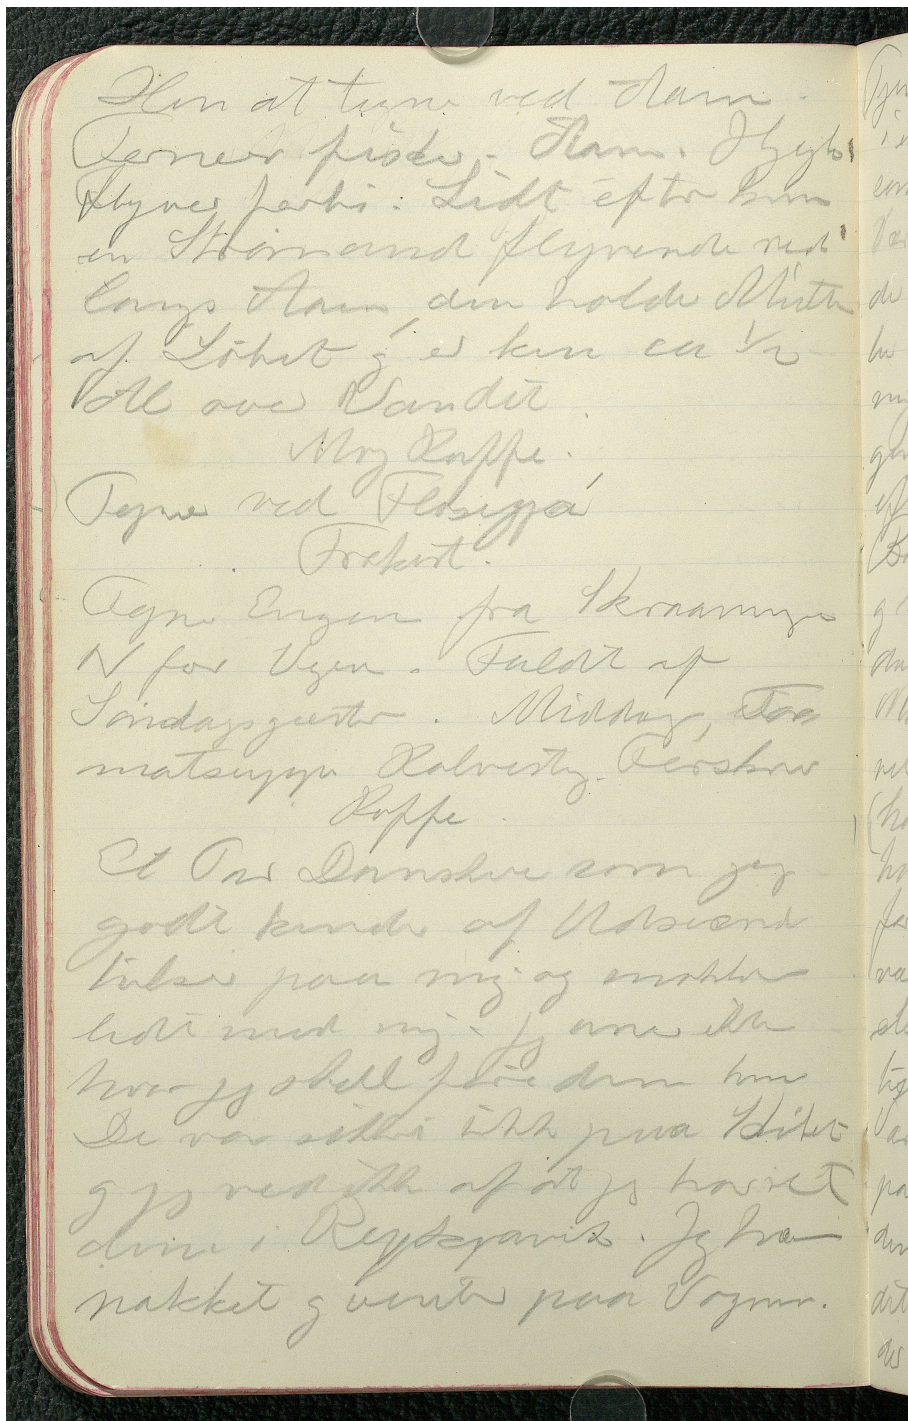 Hen at tegne ved Aaen.
Ternere fisker. Aaen.
Flyver forbi. Lidt efter kom
en Strömand flyvende ned
langs Aaen, den holder Midten
af Löbet g er kun ca 1/2
Al over Vandet.
Mrg Kaffe.
Tegner ved Flosegjá
Frokost.
Tegner Engen fra Skraaningen
N for Vejen. Fuldt af
Söndagsgæster. Middag, To
matsuppe Kalvesteg. Ferskner
Kaffe.
Et Par Danskere som jeg
godt kender af Udseende
hilser paa mig og snakker
lidt med mig. Jeg aner ikke
hvor jeg skal före dem hen
De var sikkert ikke paa Skibet
g jeg ved ikke af at jeg har set
dem i Reykjavik. Jeg har
pakket g venter paa Vognen.